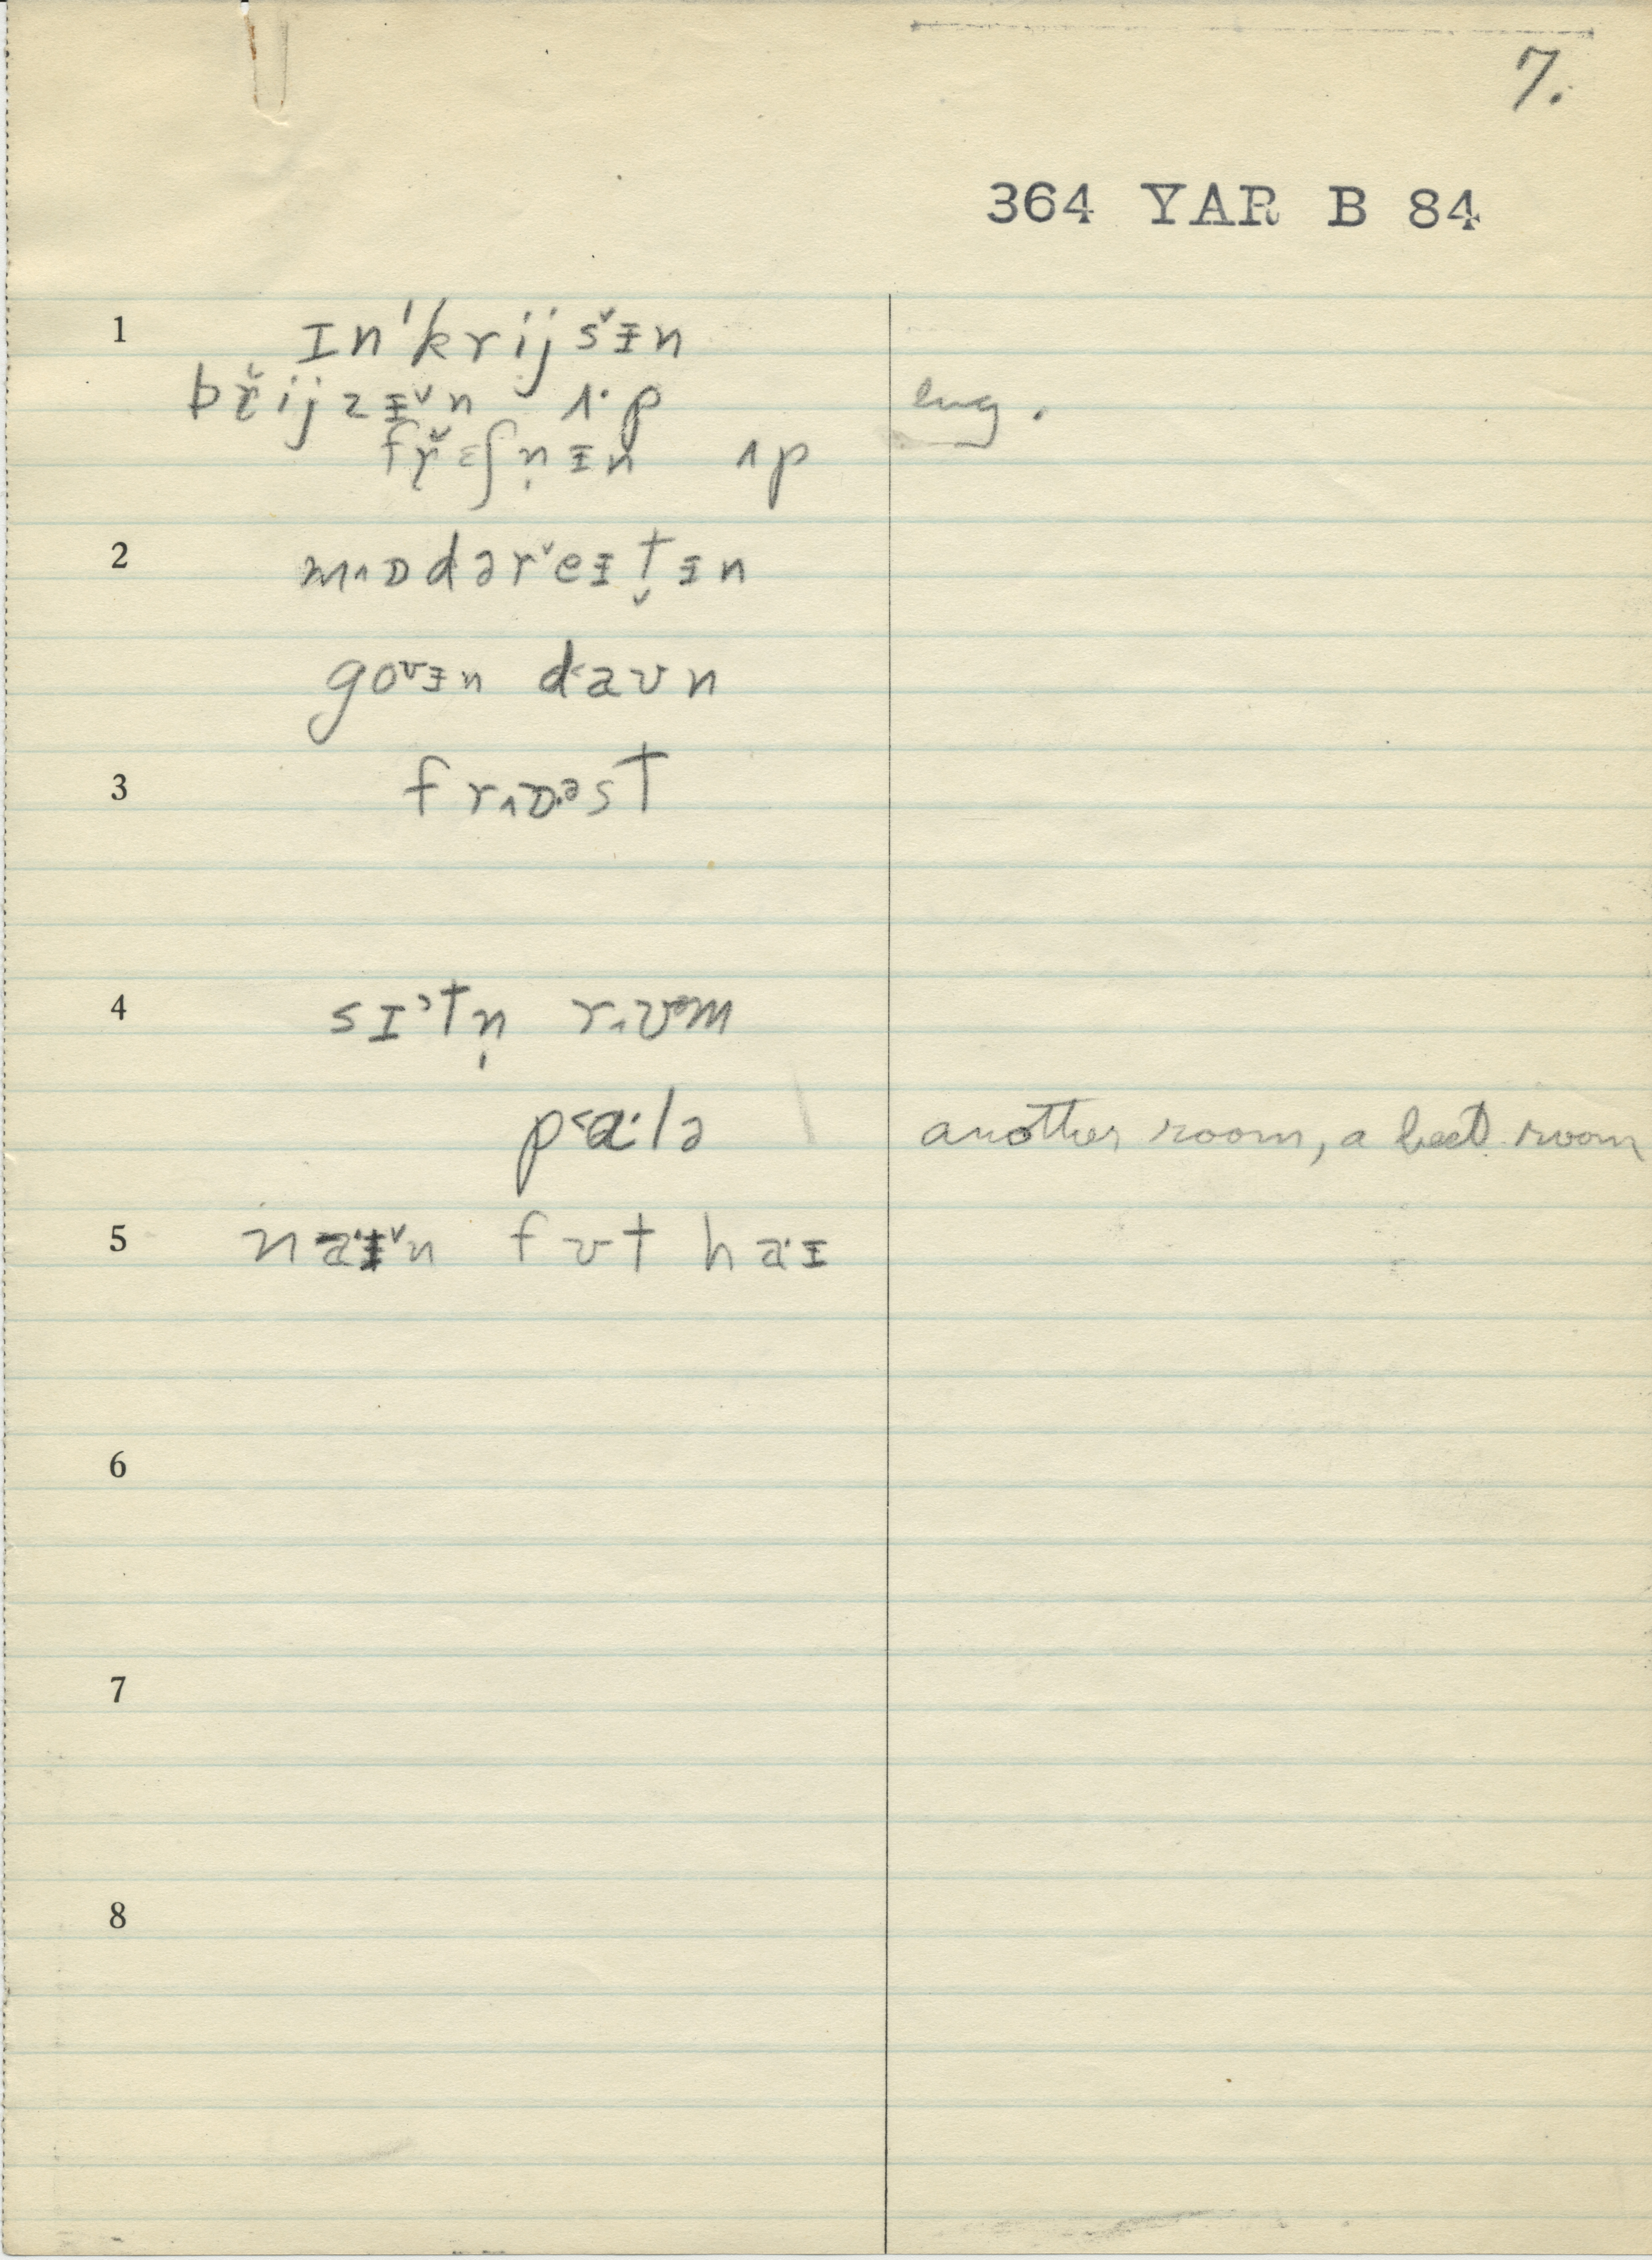 7.
364 YAR B 84
1 ɪnˈkrijsᵻ̌n
bř̨ijzᵻ̌n ʌ·p eng.
fř̨ɛʃn̩ᵻn ʌp
2 m˄ɒdərˇeᵻt̬ᵻn
goʊᵻn d˂aʊn
3 fr˄ɒ·ᵊst
4 sɪˀtn̩ r˄ʊᵘm
p˂a·lə another room, a best room
5 na·ᵻ̌n fʊt ha·ɪ
6
7
8